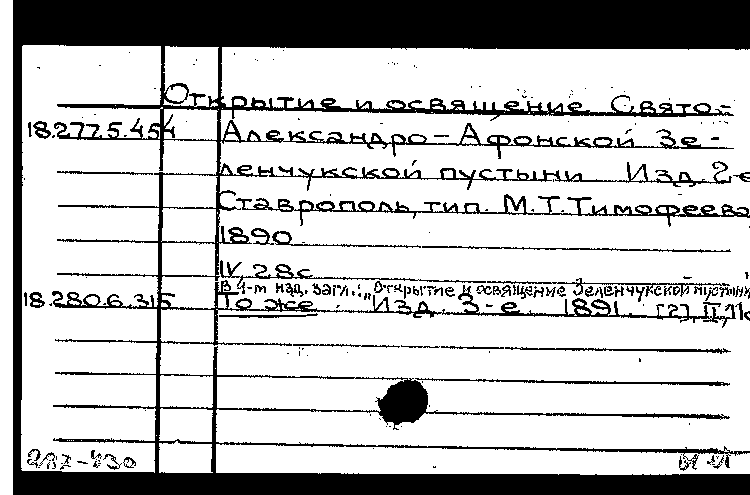 Открытие и освящение Свято-
18.277.5.454 Александро-Афонской Зе-
ленчукской пустыни Изд. 2-е
Ставрополь, тип. М.Т. Тимофеева,
1890
IV, 28с
В 1-м изд. загл.: „Открытие и освящение Зеленчукской пустыни
18.280.6.315 То же. Изд. 3-е 1891. [2], II,